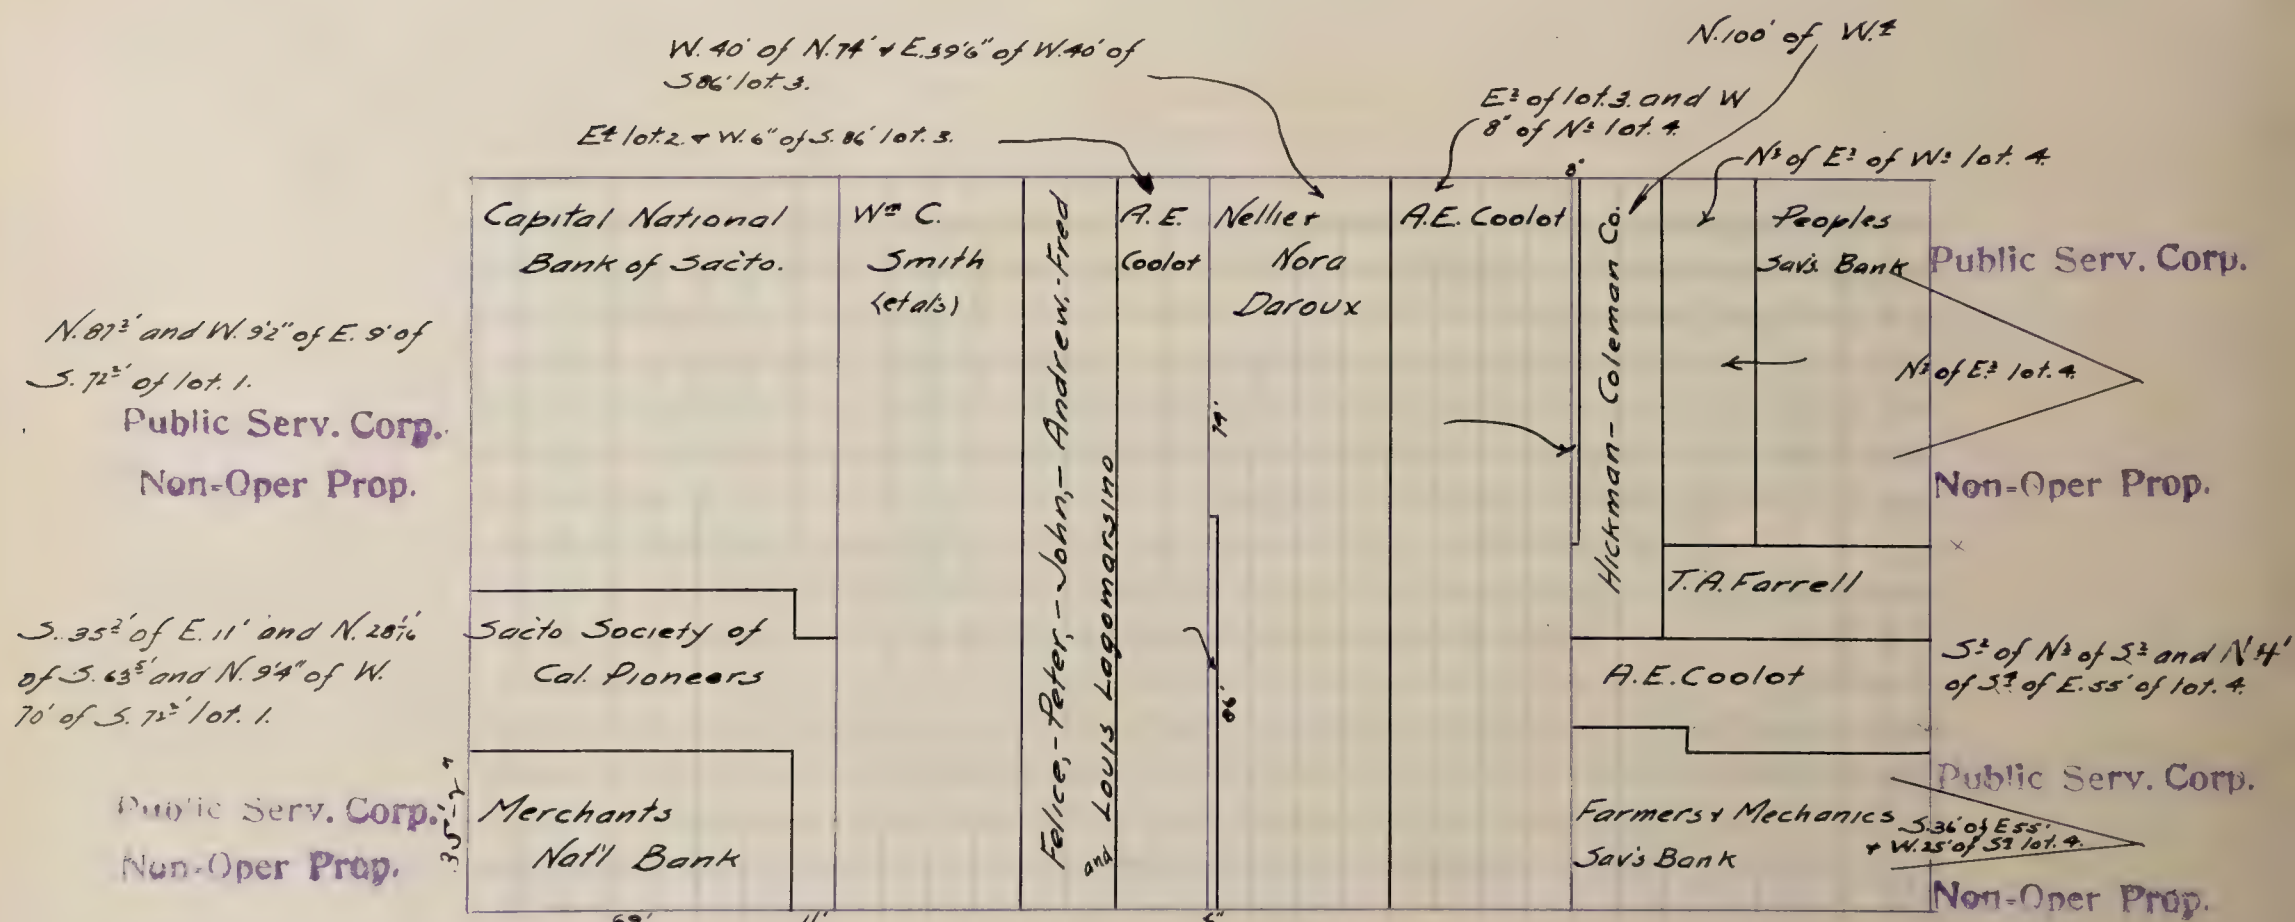 N.100' of W.¼
W.40' of N.74' & E.39'6" of W.40' of
S86' lot.3.
E½ of lot.3. and W
8" of N½ lot.4.
E¼ lot.2. & W.6" of S.86' lot.3.
N½ of E½ of W½ lot.4.
8"
Capital National
Bank of Sacto.
Wm C.
Smith
(etals)
Felice,-Peter,-John,-Andrew.-Fred
and Louis Lagomarsino
A.E.
Coolot
Nellie &
Nora
Daroux
A.E. Coolot
Hickman-Coleman Co.
Peoples
Sav's. Bank
Public Serv. Corp.
N.87½' and W.9'2" of E.9' of
S.72½' of lot.1.
Public Serv. Corp.
Non-Oper Prop.
N½ of E½ lot.4.
Non-Oper Prop.
74'
86'
T.A.Farrell
S.35½' of E.11' and N.28
of S.63 and N.9'4" of W.
70' of S.72½' lot.1.
Sacto Society of
Cal. Pioneers
A.E.Coolot
S½ of N½ of S½ and N.4'
of S¼ of E.55' of lot.4.
Public Serv. Corp.
Non-Oper Prop.
35'-2"
Merchants
Nat'l Bank
Farmers & Mechanics
Sav's Bank
S.36' of E55'
& W.25' of S¼ lot.4.
Public Serv. Corp.
Non-Oper Prop.
69'
11'
6"